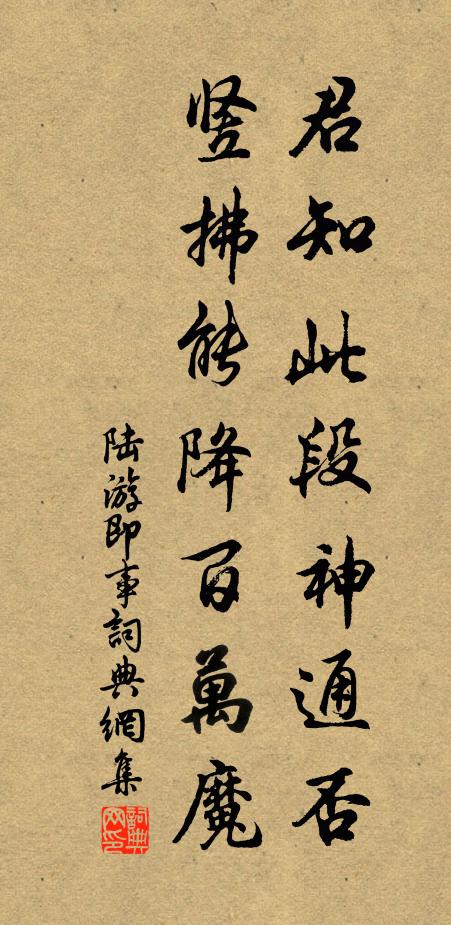 君知此段神通否
竖拂能降百萬魔
陆游即事詞典網集
詞典网印